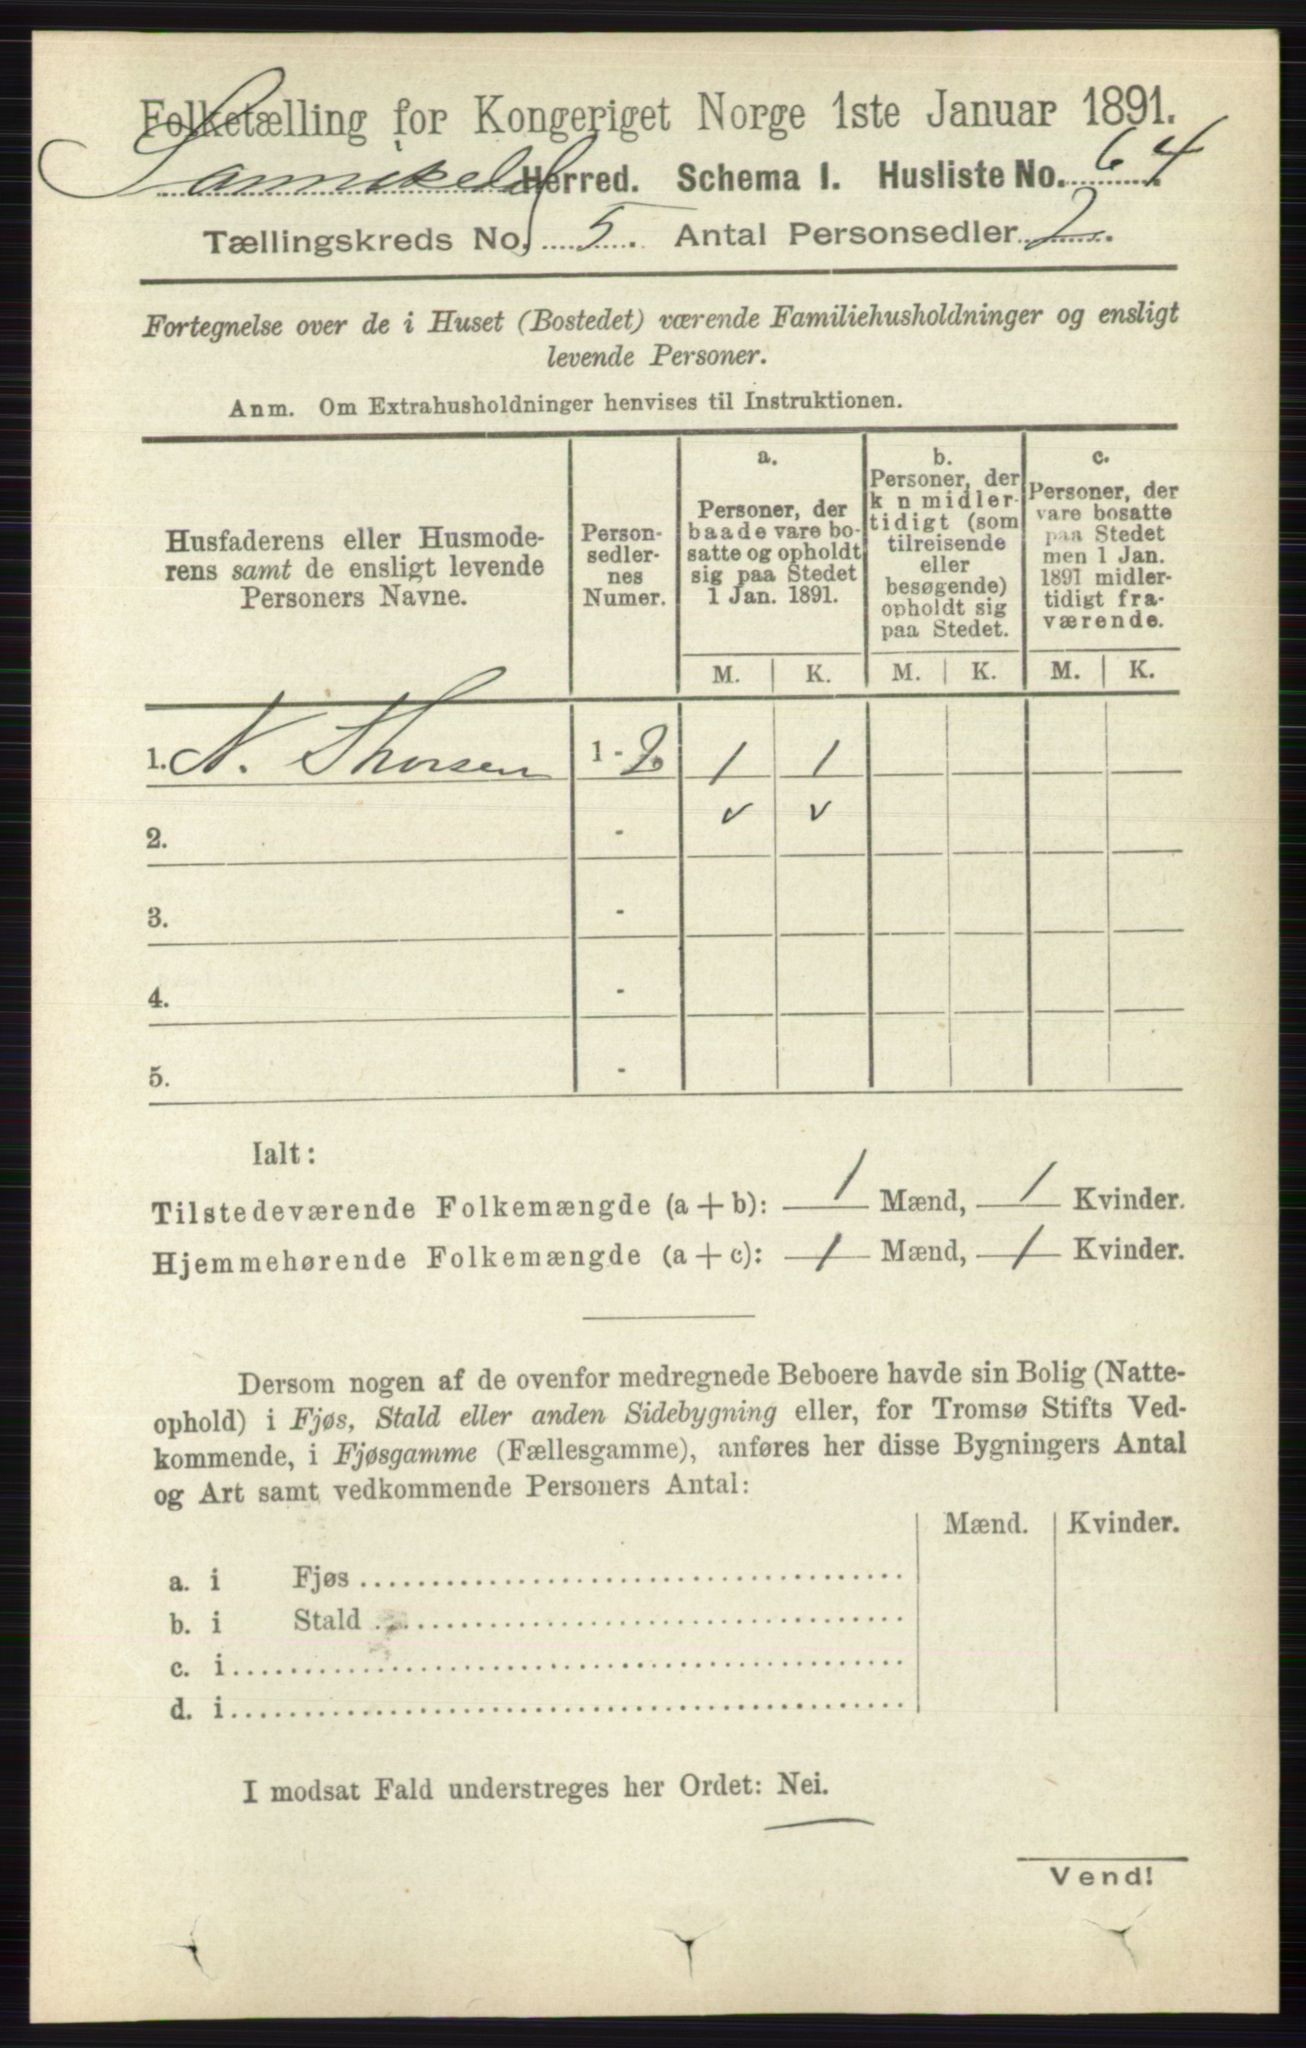 Folketælling for Kongeriget Norge 1ste Januar 1891.
Sannikedal Herred. Schema I. Husliste No. 64
Tællingskreds No. 5. Antal Personsedler 2.
Fortegnelse over de i Huset (Bostedet) værende Familiehusholdninger og ensligt
levende Personer.
Anm. Om Extrahusholdninger henvises til Instruktionen.
Husfaderens eller Husmode-
rens samt de ensligt levende
Personers Navne.
Person-
sedler-
nes
Numer.
a.
Personer, der
baade vare bo-
satte og opholdt
sig paa Stedet
1 Jan. 1891.
b.
Personer, der
k n midler-
tidigt (som
tilreisende
eller
besøgende)
opholdt sig
paa Stedet.
c.
Personer, der
vare bosatte
paa Stedet
men 1 Jan.
1891 midler-
tidigt fra-
værende.
M. K. M. K. M. K.
1. N. Thorsen 1 - 2 1 1
2. - v v
3. -
4. -
5. -
Ialt:
Tilstedeværende Folkemængde (a + b): 1 Mænd, 1 Kvinder.
Hjemmehørende Folkemængde (a + c): 1 Mænd, 1 Kvinder.
Dersom nogen af de ovenfor medregnede Beboere havde sin Bolig (Natte-
ophold) i Fjøs, Stald eller anden Sidebygning eller, for Tromsø Stifts Ved-
kommende, i Fjøsgamme (Fællesgamme), anføres her disse Bygningers Antal
og Art samt vedkommende Personers Antal:
Mænd. Kvinder.
a. i Fjøs
b. i Stald
c. i
d. i
I modsat Fald understreges her Ordet: Nei.
Vend!